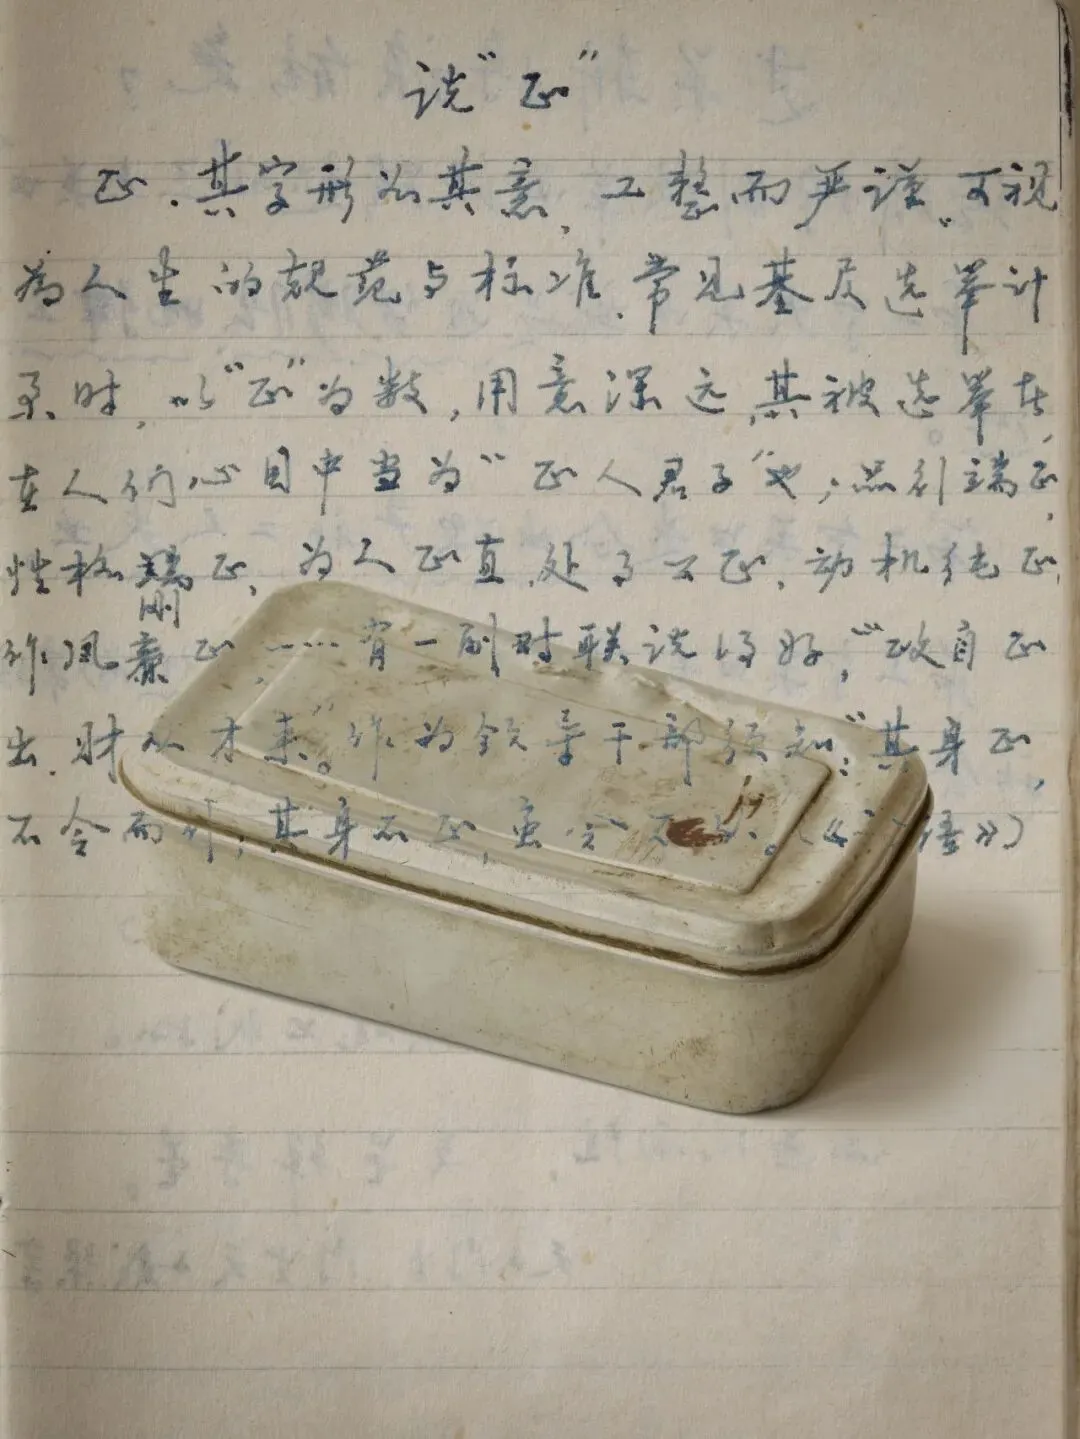 说“正”
正．其字形如其意，工整而严谨。可视
为人生的规范与标准．常见基层选举计
票时，以“正”为数，用意深远，其被选举者，
在人们心目中当为“正人君子”也，品行端正，
性格刚正，为人正直，处事公正，动机纯正，
作风廉正，……有一副对联说得好，“政自正
出，财从才来”。作为领导干部须知：“其身正，
不令而行；其身不正，虽令不从。（《语》）